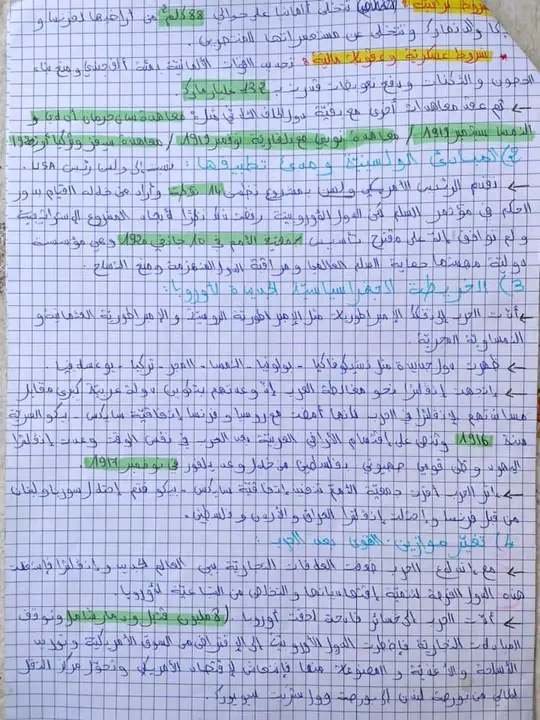 شروط ترابية: تتخلى ألمانيا على حوالي 88 كلم² من أراضيها لفرنسا و
والدنمارك وتتخلى عن مستعمراتها للمنتصرين.
* شروط عسكرية وعقوبات مالية: تحديد القوات الألمانية بمئة ألف جندي ومنع بناء
الحصون والثكنات ودفع تعويضات قدرت بـ 132 مليار مارك
← تم عقد معاهدات أخرى مع بقية دول التحالف مثل: معاهدة سان جرمان أون لي و
النمسا سبتمبر 1919 / معاهدة نويي مع بلغارية نوفمبر 1919 / معاهدة سيفر وتركيا أوت 1920
2) المبادئ الولسنية ومدى تطبيقها: نسبة إلى ولسن رئيس USA.
← تقدم الرئيس الأمريكي ولسن بمشروع تضمن 14 نقطة وأراد من خلاله القيام بدور
الحكم في مؤتمر السلم لكن الدول الأوروبية رفضت ذلك نظرا
ولم توافق إلا على مقترح تأسيس جمعية الأمم في 10 جانفي 1920 وهي مؤسسة
دولية مهمتها حماية السلم العالمي ومراقبة الدول المنهزمة ومنع التسلح.
3) الخريطة الجغراسياسية الجديدة لأوروبا:
← أدت الحرب إلى تفكك الإمبراطوريات مثل الإمبراطورية الروسية والإمبراطورية العثمانية و
النمساوية المجرية.
← ظهرت دول جديدة مثل تشيكوسلوفاكيا - بولونيا - النمسا - المجر - تركيا - يوغسلافيا.
← اتجهت إنقلترا نحو مغالطة العرب إذ وعدتهم بتكوين دولة عربية كبرى مقابل
مساندتهم لإنقلترا في الحرب لكنها أمضت مع روسيا وفرنسا إتفاقية سايكس - بيكو السرية
سنة 1916 وتنص على إقتسام الأراضي العربية بعد الحرب في نفس الوقت وعدت إنقلترا
اليهود وطن قومي صهيوني بفلسطين من خلال وعد بلفور في نوفمبر 1917.
← إثر الحرب أقرت جمعية الأمم تنفيذ إتفاقية سايكس - بيكو فتم إحتلال سوريا ولبنان
من قبل فرنسا واحتلت إنقلترا العراق والأردن وفلسطين.
4) تغير موازين القوى بعد الحرب:
← مع إندلاع الحرب ضعفت العلاقات التجارية بين العالم الجديد وإنقلترا فاستغلت
هذه الدول الفرصة لتنمية إقتصادياتها والتخلص من التبعية لأوروبا.
← أدت الحرب إلى خسائر فادحة لحقت أوروبا (8 مليون قتيل ودمار شامل) وتوقف
المبادلات التجارية فاضطرت الدول الأوروبية إلى الإقتراض من السوق الأمريكية وتوريد
الأسلحة والأغذية و المصنوعة منها فانتعش الإقتصاد الأمريكي وتحول مركز الثقل
المالي من بورصة لندن إلى بورصة وول ستريت نيويورك.